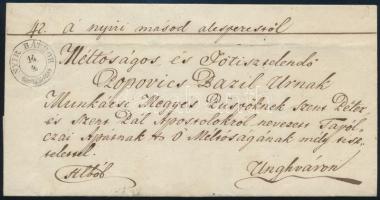 42. a nyiri másod alesperestől
NYIR BÁTHOR
14
Méltóságos és Főtisztelendő
Popovics Bazil Urnak
Munkácsi Megyés Püspöknek Szent Péter
és Szent Pál Apostolokról nevezett Tapol-
czai Apátnak s Ő Méltóságának mély tisz-
telettel.
Unghváron